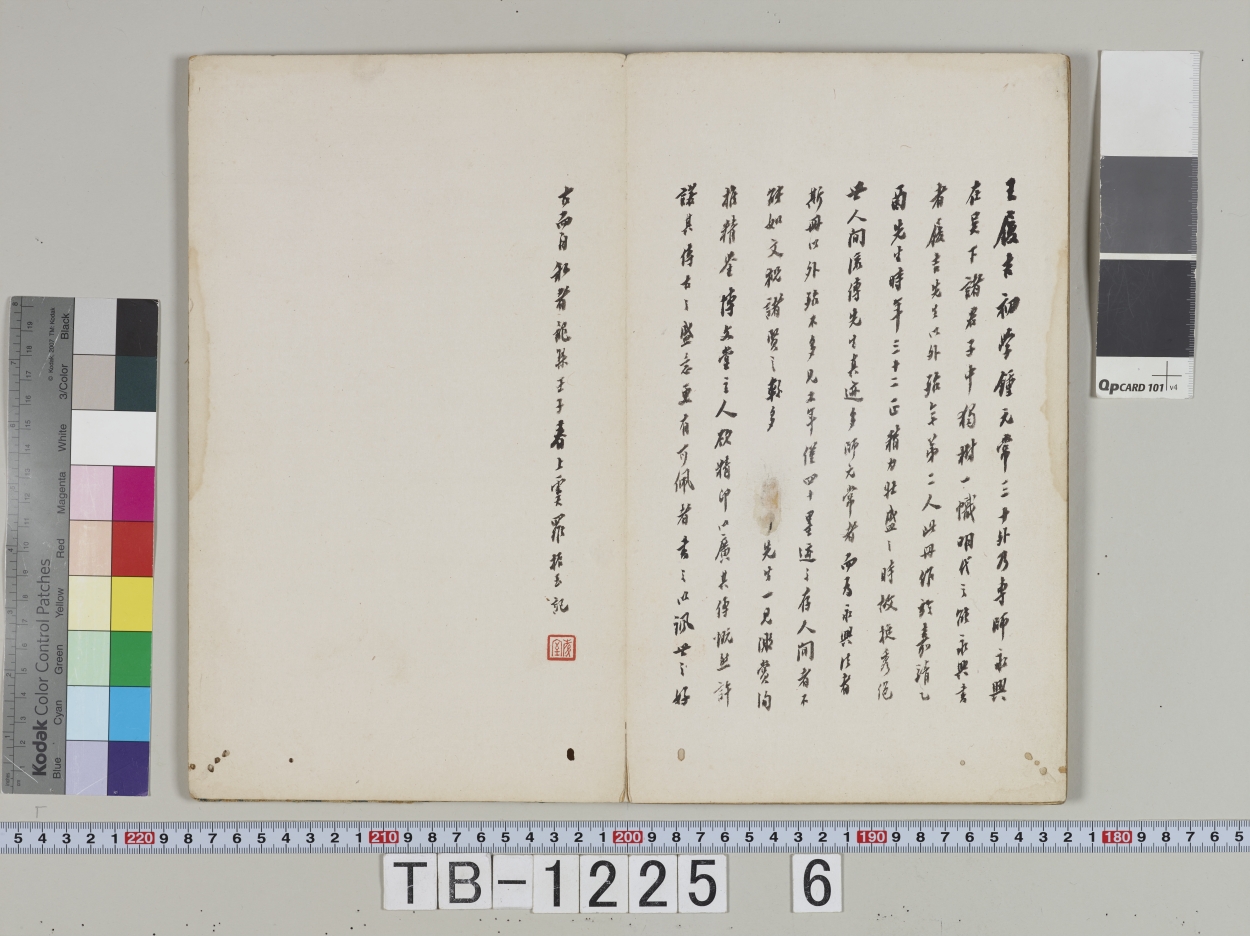 王履吉初学鍾元常三十外乃專師永興
在吴下諸君子中獨樹一幟明代之能永興書
者履吉先生以外殆無第二人此册作於嘉靖乙
酉先生時年三十二正精力壯盛之時故挺秀絕
世人間流傳先生真迹多師元常者而為永興法者
斯册以外殆不多見生年僅四十墨迹之存人間者不
能如文祝諸賢之夥多
先生一見激賞詢
推精鑒博文堂主人欲精印以廣其傳慨然許
諾其傳古之盛意更有可佩者書之以諗世之好
古而有知者龍集壬子春上虞羅振玉記
5 4 3 2 1 220 9 8 7 6 5 4 3 2 1 210 9 8 7 6 5 4 3 2 1 200 9 8 7 6 5 4 3 2 1 190 9 8 7 6 5 4 3 2 1 180 9 8 7 6 5
TB-1225 6
Kodak Color Control Patches
Blue Cyan Green Yellow Red Magenta White 3/Color Black
© Kodak, 2007 TM: Kodak
QpCARD 101 v4